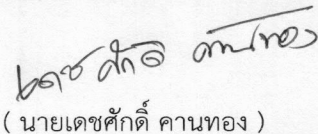 เดชศักดิ์ คานทอง
( นายเดชศักดิ์ คานทอง )